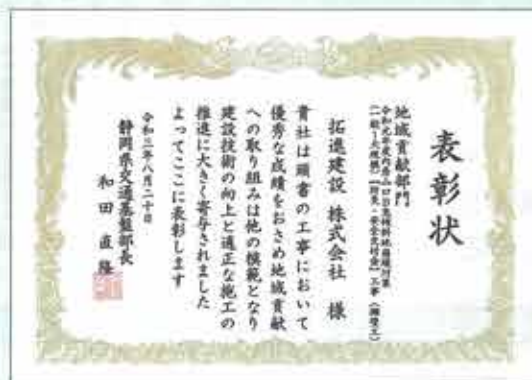 表彰状
地域貢献部門
拓進建設 株式会社 様
貴社は頭書の工事において
優秀な成績をおさめ地域貢献
への取り組みは他の模範となり
建設技術の向上と適正な施工の
推進に大きく寄与されました
よってここに表彰します
令和三年八月二十日
静岡県交通基盤部長
和田 直隆